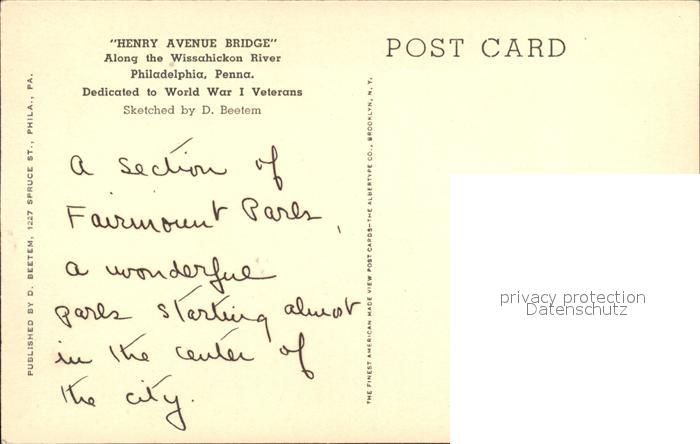 "HENRY AVENUE BRIDGE"
Along the Wissahickon River
Philadelphia, Penna.
Dedicated to World War I Veterans
Sketched by D. Beetem
POST CARD
A section of
Fairmount Park,
a wonderful
park starting almost
in the center of
the city.
PUBLISHED BY D. BEETEM, 1227 SPRUCE ST., PHILA., PA.
THE FINEST AMERICAN MADE VIEW POST CARDS—THE ALBERTYPE CO., BROOKLYN, N. Y.
privacy protection
Datenschutz